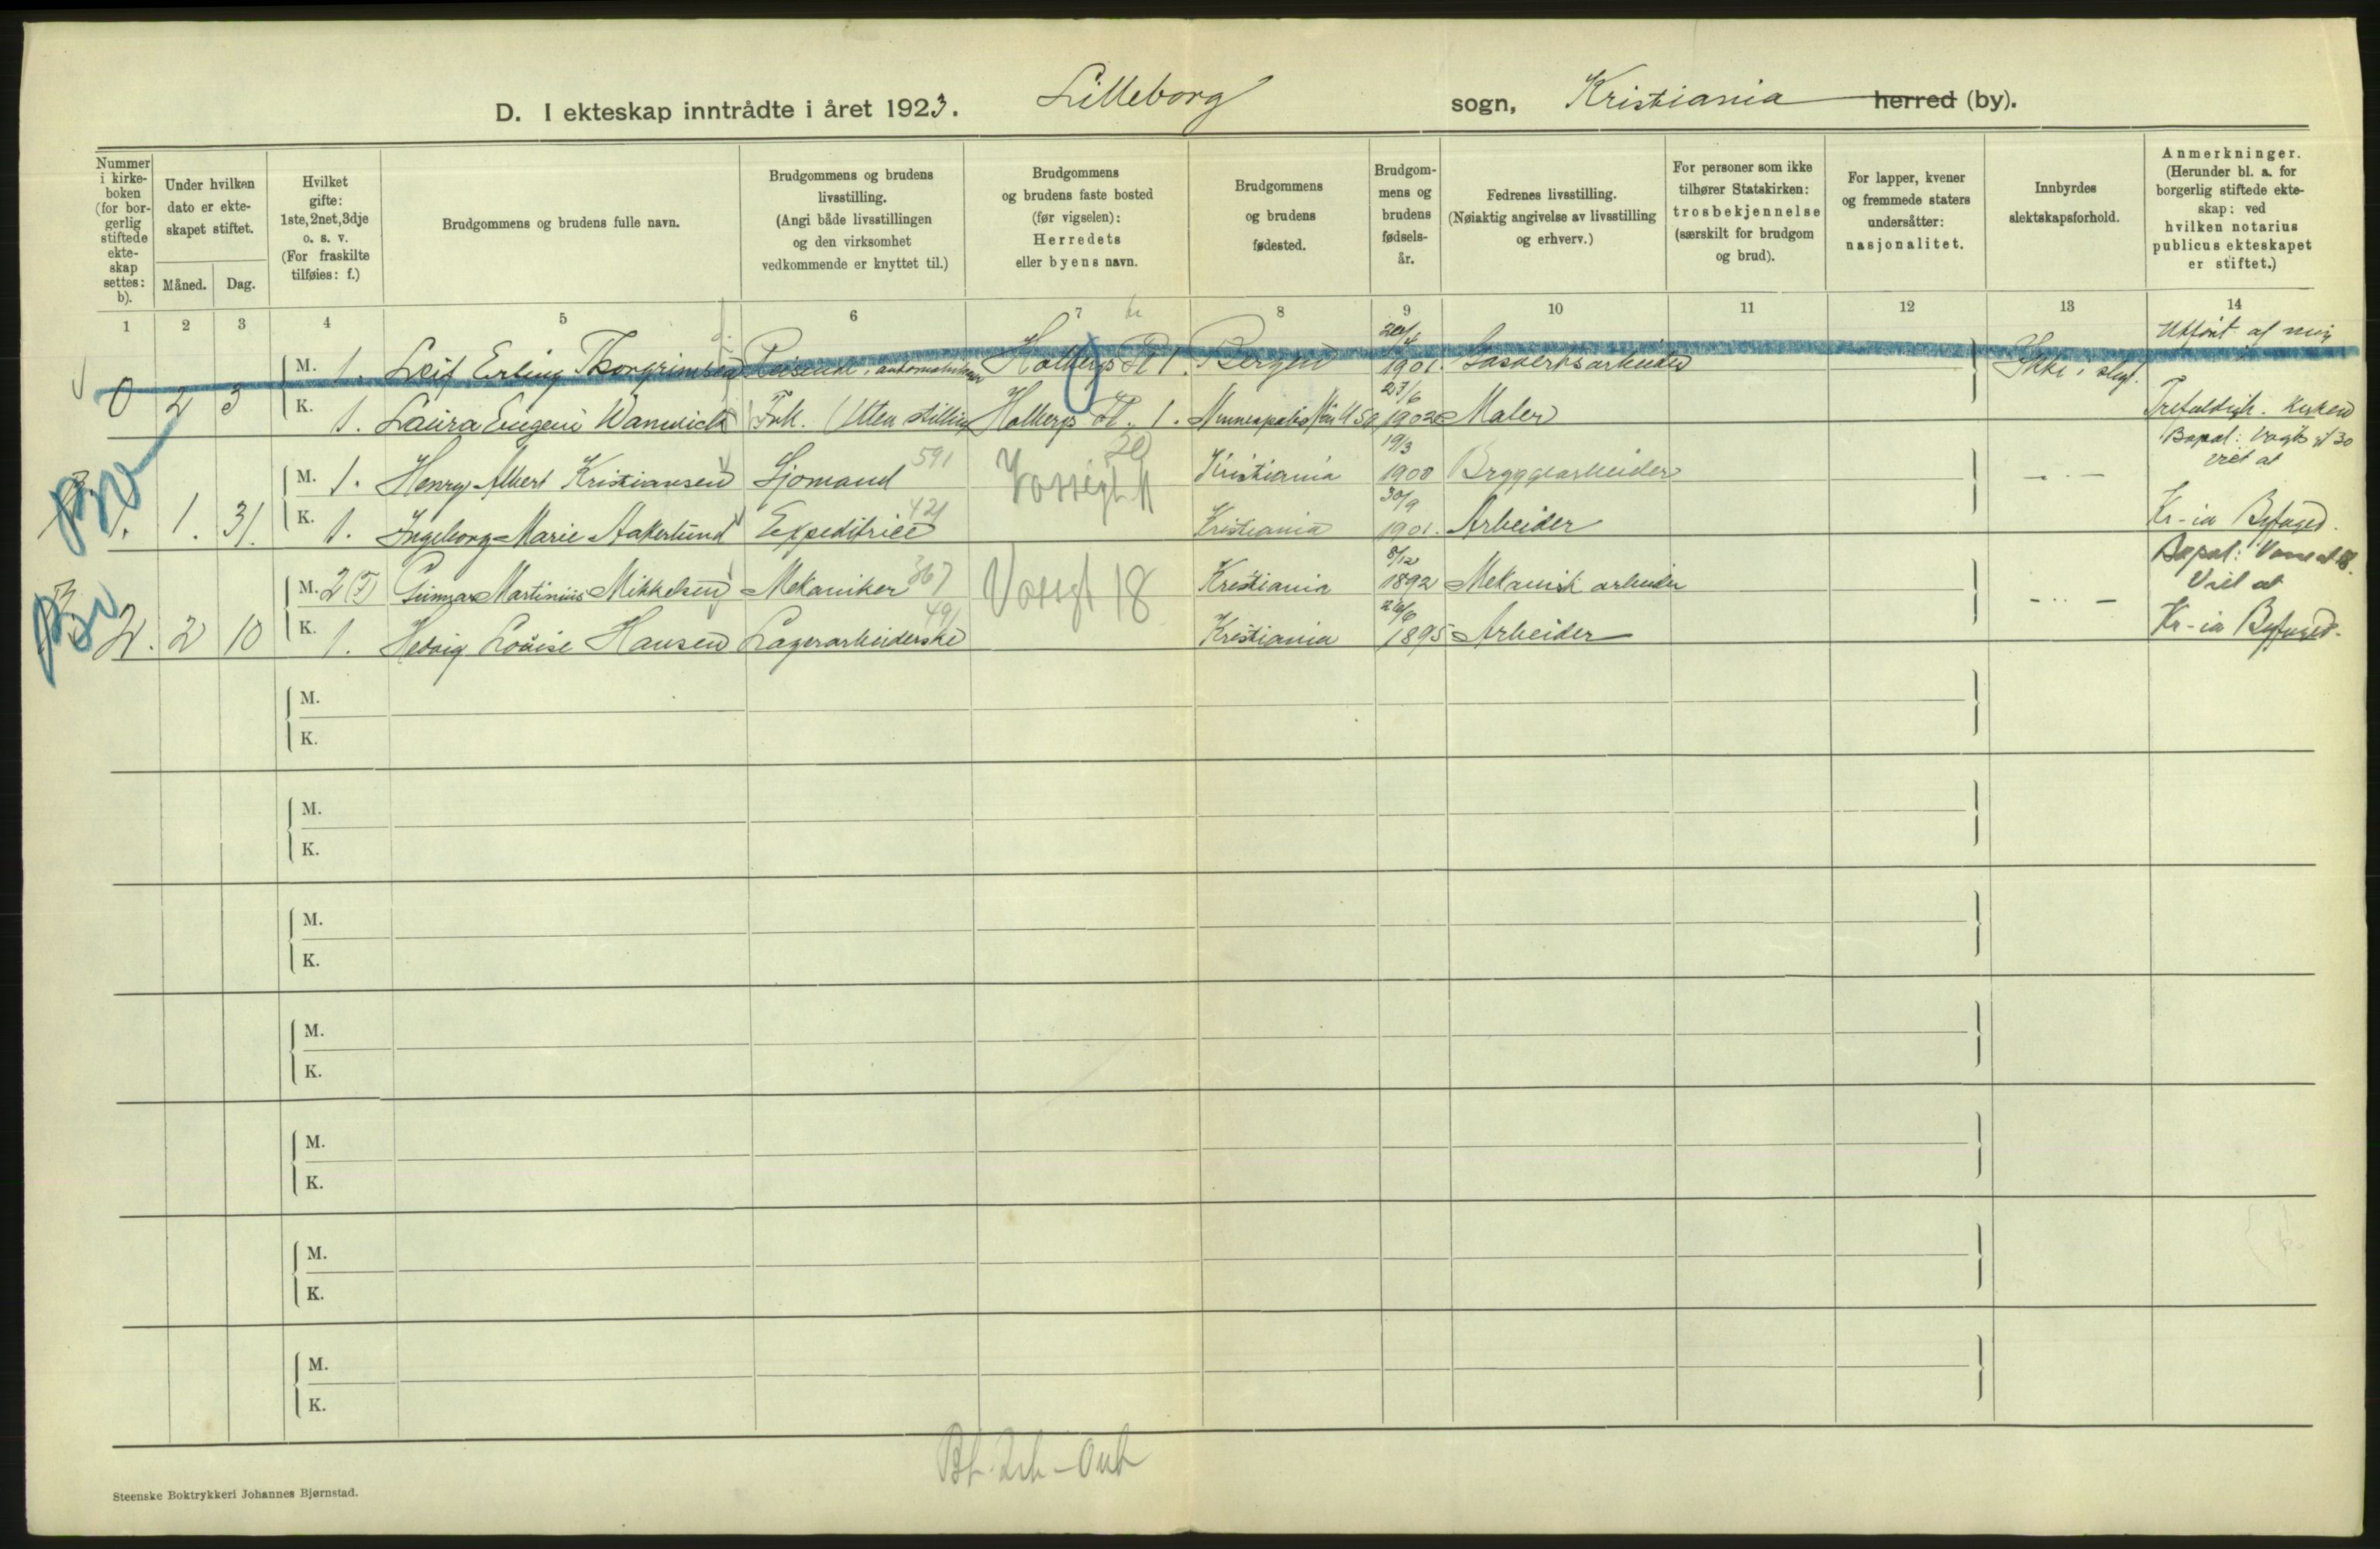 D. I ekteskap inntrådte i året 1923. Lilleborg sogn, Kristiania herred (by).
Nummer i kirkeboken (for borgerlig stiftede ekteskap settes: b).
Under hvilken dato er ekteskapet stiftet.
Måned. Dag.
Hvilket gifte: 1ste, 2net, 3dje o. s. v. (For fraskilte tilføies: f.)
Brudgommens og brudens fulle navn.
Brudgommens og brudens livsstilling. (Angi både livsstillingen og den virksomhet vedkommende er knyttet til.)
Brudgommens og brudens faste bosted (før vigselen): Herredets eller byens navn.
Brudgommens og brudens fødested.
Brudgommens og brudens fødselsår.
Fedrenes livsstilling. (Nøiaktig angivelse av livsstilling og erhverv.)
For personer som ikke tilhører Statskirken: trosbekjennelse (særskilt for brudgom og brud).
For lapper, kvener og fremmede staters undersåtter: nasjonalitet.
Innbyrdes slektskapsforhold.
Anmerkninger. (Herunder bl. a. for borgerlig stiftede ekteskap: ved hvilken notarius publicus ekteskapet er stiftet.)
1 2 3 4 5 6 7 8 9 10 11 12 13 14
M. 1. Leif Erling Thorgrimsen Reisende i Holbergs Pl 1. Bergen 20/4 1901. Gasverksarbeider Ikke i slegt. Utført af mig
0 2 3 K. 1. Laura Eugeni Warwick Frk. (Uten stilling Holbergs Pl. 1. Minneapolis U S A 27/6 1902 Maler Trefoldigh. Kirken
M. 1. Henry Albert Kristiansen Sjømand 591 Kristiania 19/3 1900 Bryggearbeider Bopæl: Viet at
1. 1. 31. K. 1. Ingeborg Marie Aakerlund Expeditrice 421 Kristiania 30/9 1901. Arbeider Kr-ia Byfoged.
M. 2(F) Gunnar Martinius Mikkelsen Mekaniker 367 Vossgt 18 Kristiania 8/12 1892 Mekanisk arbeider Bopæl: 18. Viet at
2. 2 10 K. 1. Hedvig Lovise Hansen Lagerarbeiderske 491 Kristiania 26/6 1895 Arbeider Kr-ia Byfoged.
M.
K.
M.
K.
M.
K.
M.
K.
M.
K.
M.
K.
M.
K.
Steenske Boktrykkeri Johannes Bjørnstad.